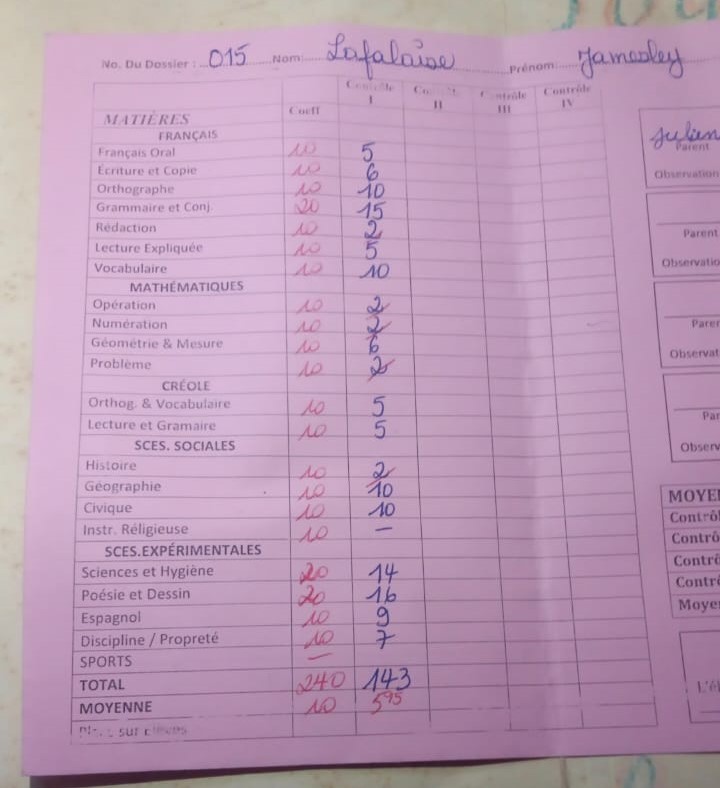 No. Du Dossier : 015 Nom: Lafalaise Prénom: Jamesley
MATIÈRES Coeff Contrôle I Contrôle II Contrôle III Contrôle IV
FRANÇAIS
Français Oral 10 5
Écriture et Copie 10 6
Orthographe 10 10
Grammaire et Conj. 20 15
Rédaction 10 2
Lecture Expliquée 10 5
Vocabulaire 10 10
MATHÉMATIQUES
Opération 10 2
Numération 10 2
Géométrie & Mesure 10 6
Problème 10 2
CRÉOLE
Orthog. & Vocabulaire 10 5
Lecture et Gramaire 10 5
SCES. SOCIALES
Histoire 10 2
Géographie 10 10
Civique 10 10
Instr. Réligieuse 10 —
SCES.EXPÉRIMENTALES
Sciences et Hygiène 20 14
Poésie et Dessin 20 16
Espagnol 10 9
Discipline / Propreté 10 7
SPORTS —
TOTAL 240 143
MOYENNE 10 5 95
sur élèves
Julien
Parent
Observation
Parent
Observatio
Paren
Observat
Par
Observ
MOYE
Contrôl
Contrô
Contrô
Contr
Moye
L'é